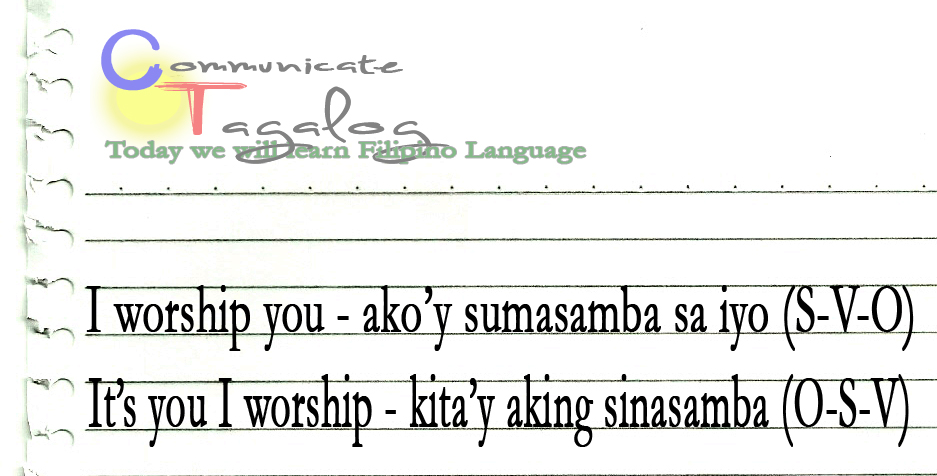 Communicate
Tagalog
Today we will learn Filipino Language
I worship you - ako’y sumasamba sa iyo (S-V-O)
It’s you I worship - kita’y aking sinasamba (O-S-V)